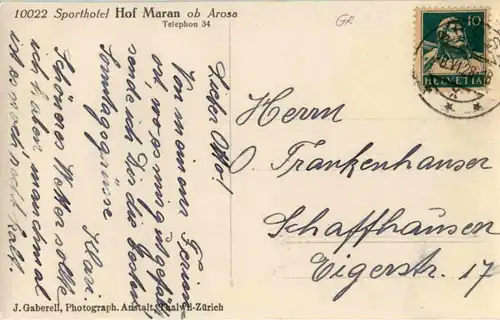 10022 Sporthotel Hof Maran ob Arosa
Telephon 34
GR
10
HELVETIA
VI.28
X
Lieber Otto!
Von meinem Ferien-
ort, wo es mir gut gefällt,
sende ich Dir die besten
Sonntagsgrüsse
Klari.
Schöneres Wetter sollte
ich haben, manchmal
ist es noch recht kalt.
Herrn
O. Frankenhauser
Schaffhausen
Eigerstr. 17
J. Gaberell, Photograph. Anstalt, Thalwil-Zürich